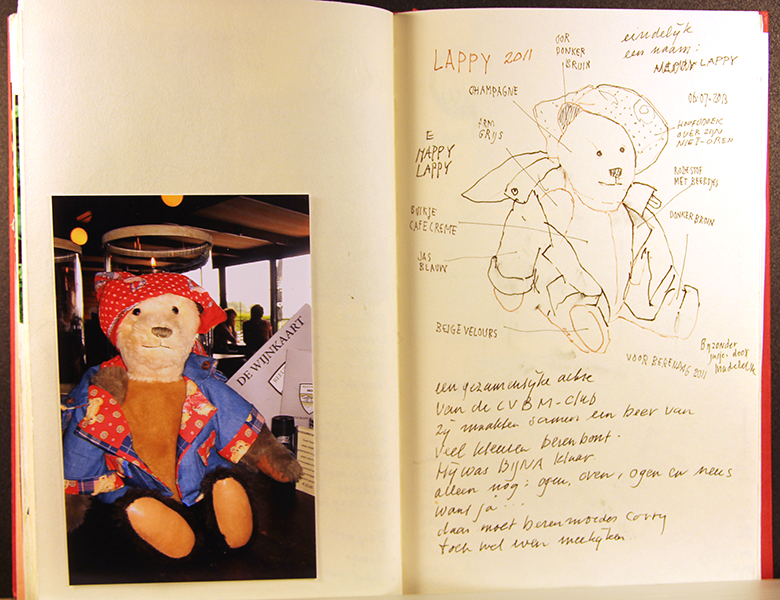 DE WIJNKAART
LAPPY 2011
OOR
DONKER
BRUIN
eindelijk
een naam:
LAPPY
CHAMPAGNE
06.07.2013
ARM
GRIJS
HOOFDDOEK
OVER ZIJN
NIET-OREN
E
HAPPY
LAPPY
RODE STOF
MET BEERTJES
BUIKJE
CAFE CREME
DONKER BRUIN
JAS
BLAUW
BEIGE VELOURS
VOOR BERENDAG 2011
Bijzonder
jasje door
een gezamenlijke aktie
van de CVBM-Club
zij maakten samen een beer van
veel kleuren berenbont.
Hij was BIJNA klaar
alleen nog: ogen, oren, ogen en neus
want ja...
daar moet berenmoeder Corry
toch wel even meekijken.